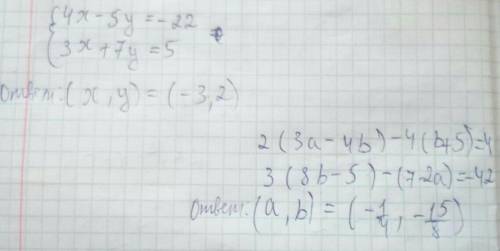 {4x-5y=-22
{3x+7y=5
ответ:(x,y)=(-3,2)
2(3a-4b)-4(b+5)=4
3(8b-5)-(7-2a)=-42
ответ:(a,b)=(-1/4, -15/8)